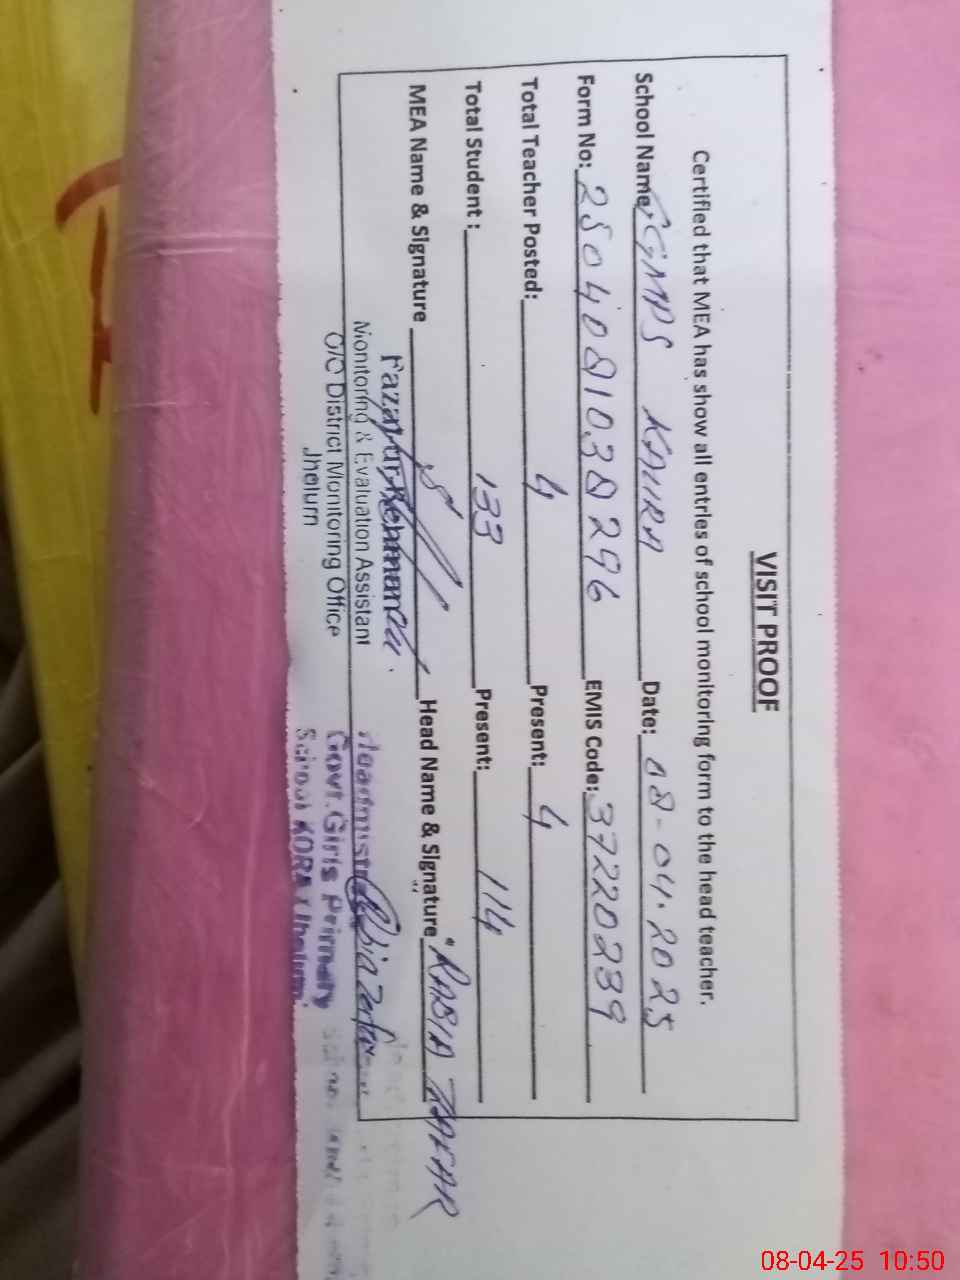 VISIT PROOF
Certified that MEA has show all entries of school monitoring form to the head teacher.
School Name: GMPS KAURA Date: 08-04-2025
Form No: 2504081038296 EMIS Code: 37220239
Total Teacher Posted: 4 Present: 4
Total Student: 133 Present: 114
MEA Name & Signature Head Name & Signature "RABIA ZAFAR
Fazal-ur-Rehman
Monitoring & Evaluation Assistant
O/O District Monitoring Office
Jhelum
Headmistress
Govt. Girls Primary
School KORA (Jhelum)
08-04-25 10:50